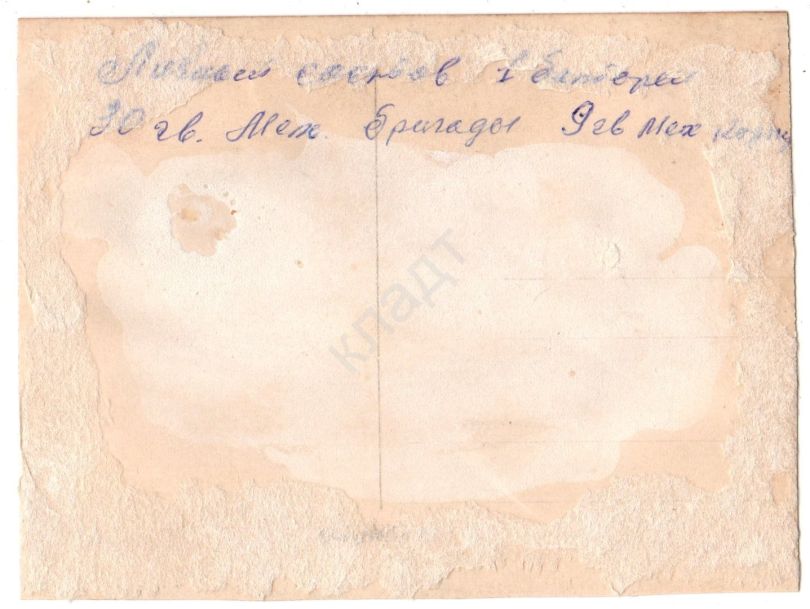 Личный состав 1 батареи
30 гв. Мех. бригады 9 гв Мех корпуса
кладт